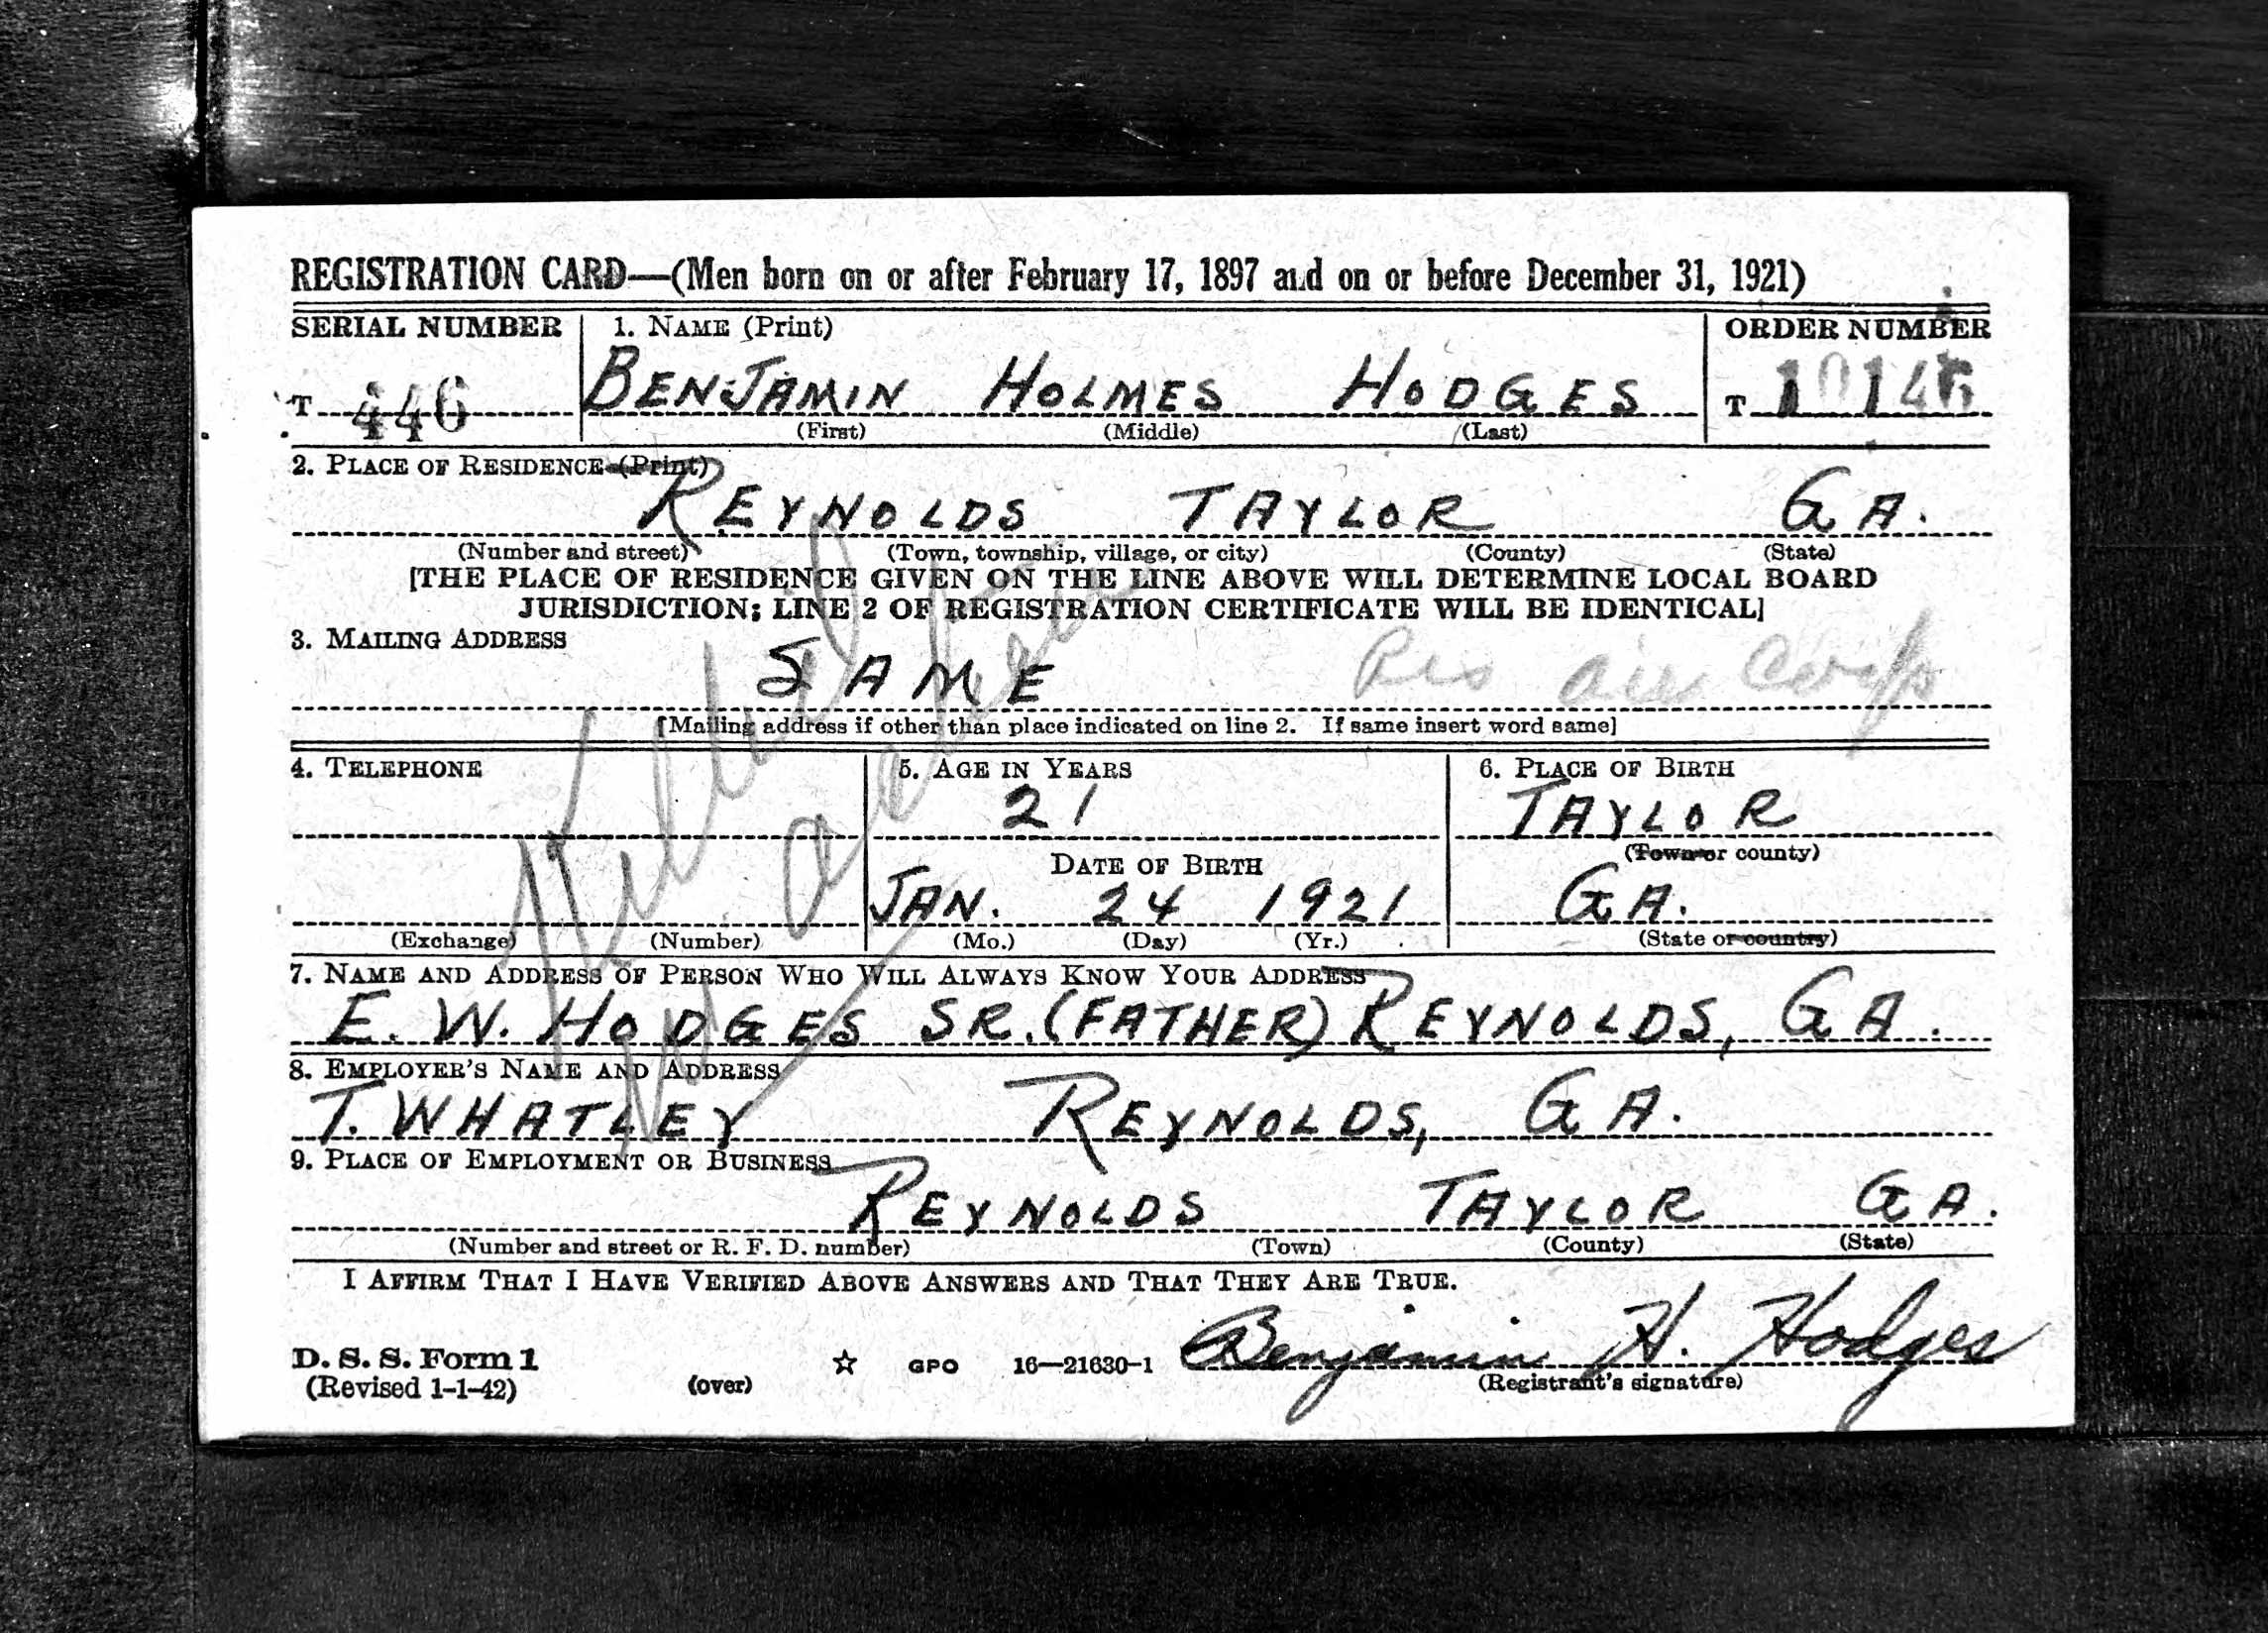 REGISTRATION CARD—(Men born on or after February 17, 1897 and on or before December 31, 1921)
SERIAL NUMBER 1. NAME (Print) ORDER NUMBER
T 446 BENJAMIN HOLMES HODGES T
(First) (Middle) (Last)
2. PLACE OF RESIDENCE (Print)
REYNOLDS TAYLOR GA.
(Number and street) (Town, township, village, or city) (County) (State)
[THE PLACE OF RESIDENCE GIVEN ON THE LINE ABOVE WILL DETERMINE LOCAL BOARD
JURISDICTION; LINE 2 OF REGISTRATION CERTIFICATE WILL BE IDENTICAL]
3. MAILING ADDRESS
SAME Res Air Corps
[Mailing address if other than place indicated on line 2. If same insert word same]
4. TELEPHONE 5. AGE IN YEARS 6. PLACE OF BIRTH
21 TAYLOR
(Town or county)
DATE OF BIRTH
JAN. 24 1921 GA.
(Exchange) (Number) (Mo.) (Day) (Yr.) (State or country)
Killed in action
7. NAME AND ADDRESS OF PERSON WHO WILL ALWAYS KNOW YOUR ADDRESS
E. W. HODGES SR. (FATHER) REYNOLDS, GA.
8. EMPLOYER'S NAME AND ADDRESS
T. WHATLEY REYNOLDS, GA.
9. PLACE OF EMPLOYMENT OR BUSINESS
REYNOLDS TAYLOR GA.
(Number and street or R. F. D. number) (Town) (County) (State)
I AFFIRM THAT I HAVE VERIFIED ABOVE ANSWERS AND THAT THEY ARE TRUE.
D. S. S. Form 1
(Revised 1-1-42) (over) ☆ GPO 16—21630-1 Benjamin H. Hodges
(Registrant's signature)